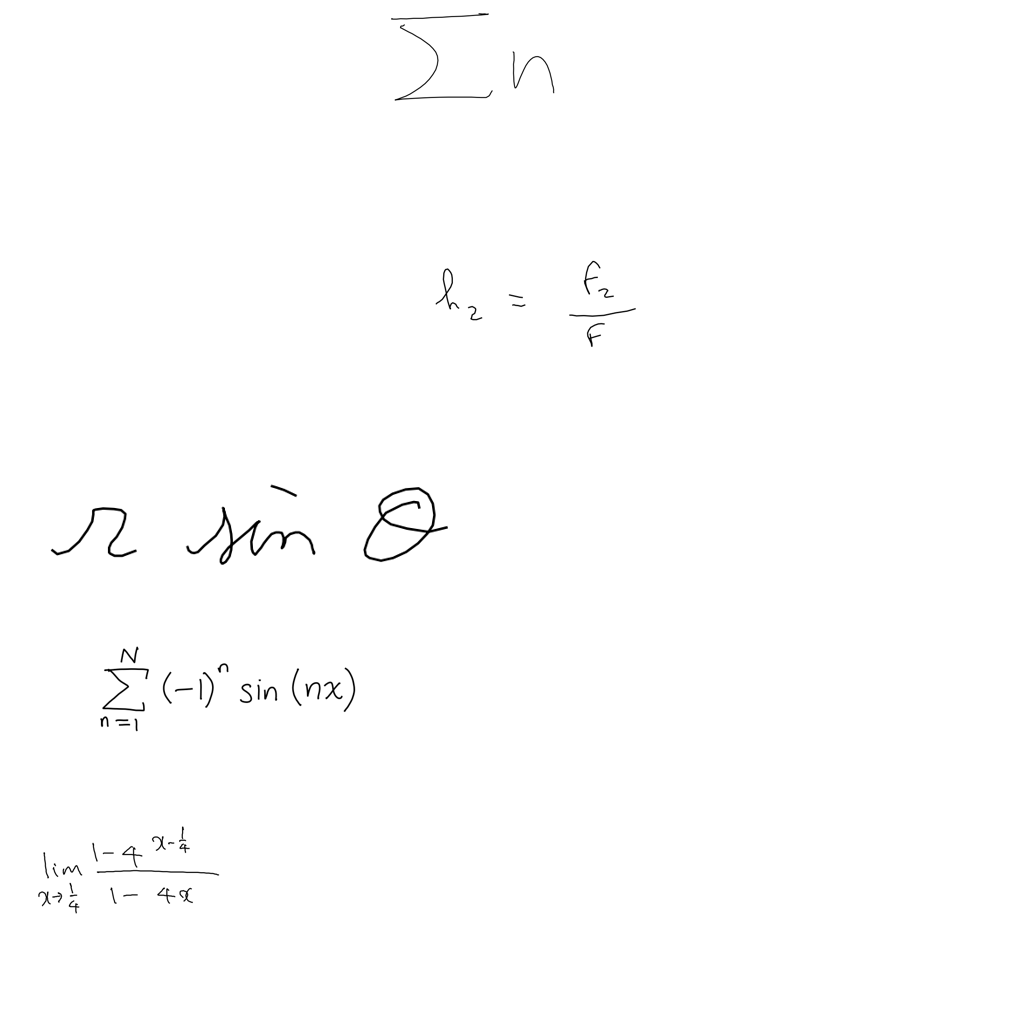 ∑ n
h₂ = F₂/F
r sin θ
∑_{n=1}^{N} (-1)^n sin (nx)
lim_{x→1/4} (1-4^{x-1/4})/(1-4x)